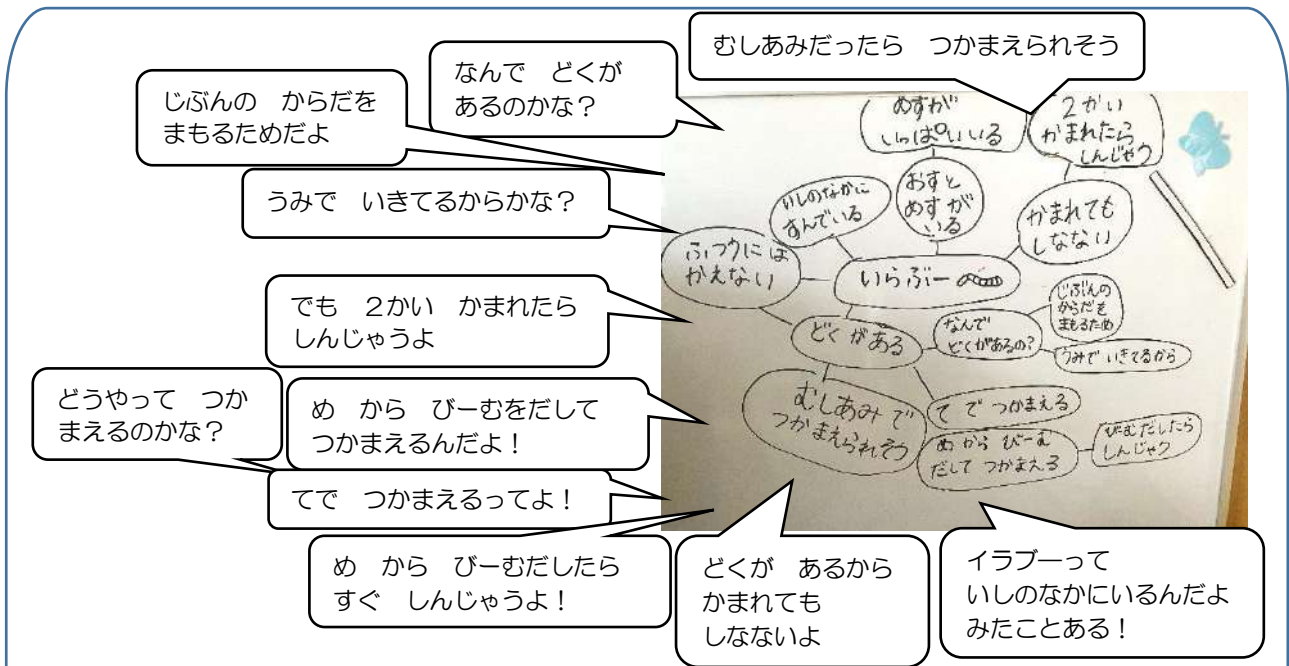 むしあみだったら　つかまえられそう
なんで　どくが
あるのかな？
じぶんの　からだを
まもるためだよ
うみで　いきてるからかな？
でも　２かい　かまれたら
しんじゃうよ
どうやって　つか
まえるのかな？
め　から　びーむをだして
つかまえるんだよ！
てで　つかまえるってよ！
め　から　びーむだしたら
すぐ　しんじゃうよ！
どくが　あるから
かまれても
しなないよ
イラブーって
いしのなかにいるんだよ
みたことある！
めすが
いっぱいいる
２かい
かまれたら
しんじゃう
いしのなかに
すんでいる
おすと
めすが
いる
かまれても
しなない
ふつうには
かえない
いらぶー
どくがある
なんで
どくがあるの？
じぶんの
からだを
まもるため
うみで いきてるから
むしあみで
つかまえられそう
てで つかまえる
めから びーむ
だして つかまえる
びーむだしたら
しんじゃう